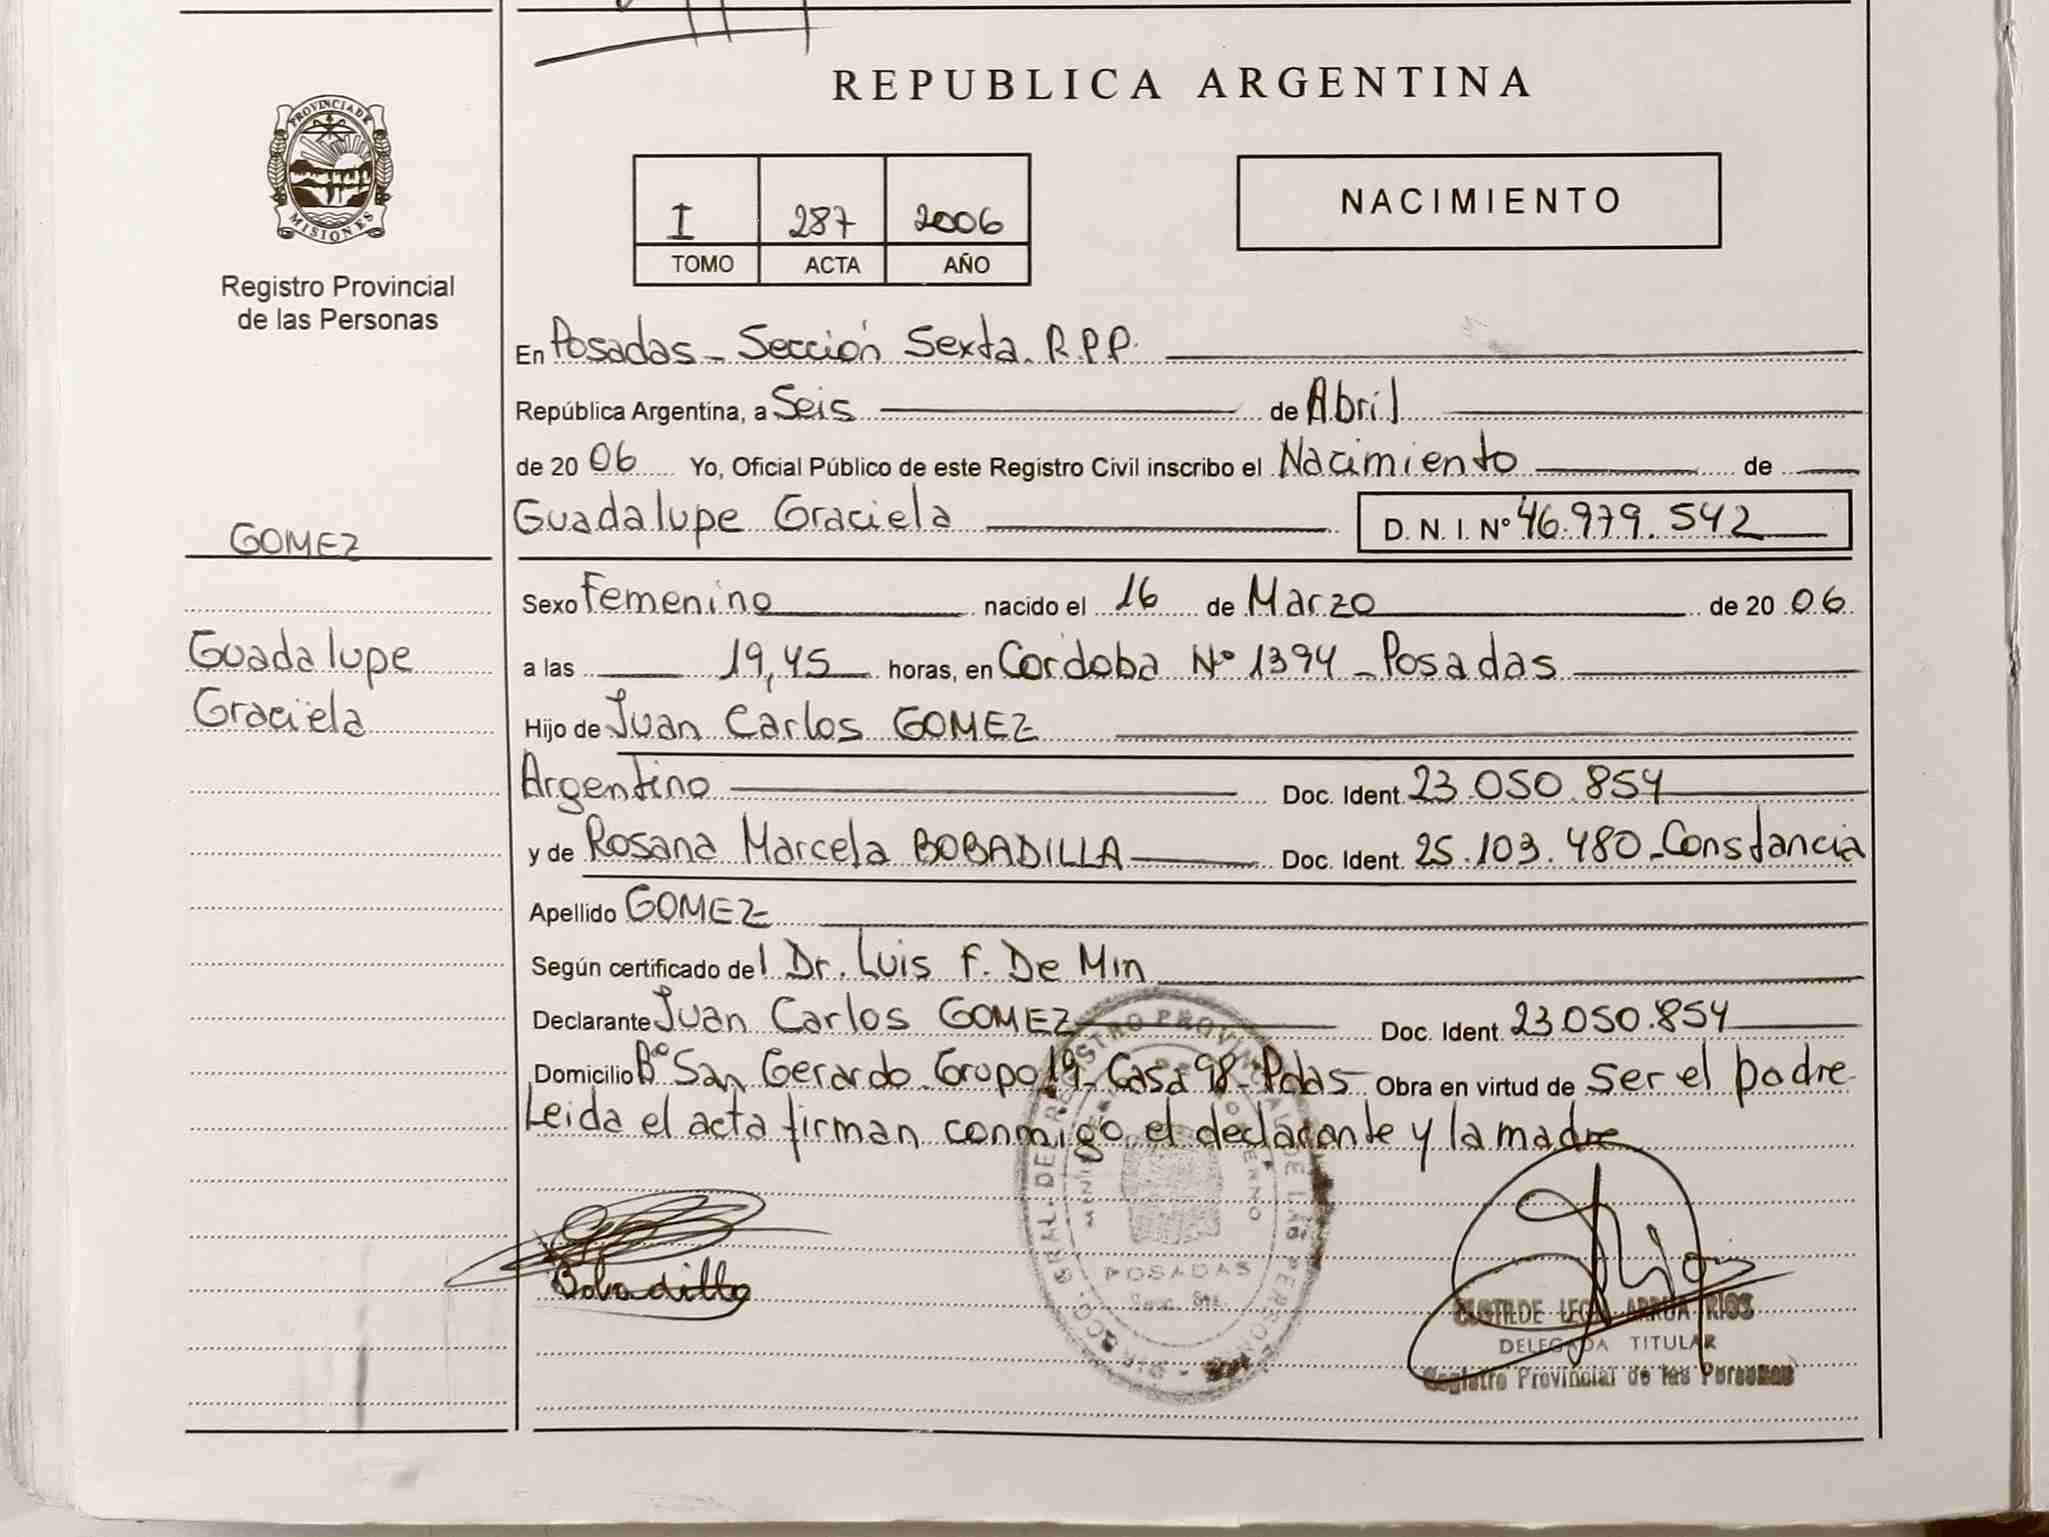 REPUBLICA ARGENTINA
PROVINCIA DE
MISIONES
Registro Provincial
de las Personas
I 287 2006
TOMO ACTA AÑO
NACIMIENTO
En Posadas - Sección Sexta. R.P.P.
República Argentina, a Seis de Abril
de 20 06 Yo, Oficial Público de este Registro Civil inscribo el Nacimiento de
Guadalupe Graciela D. N. I. Nº 46.979.542
GOMEZ
Guadalupe
Graciela
Sexo Femenino nacido el 16 de Marzo de 20 06
a las 19,45 horas, en Cordoba Nº 1394 - Posadas
Hijo de Juan Carlos GOMEZ
Argentino Doc. Ident. 23.050.854
y de Rosana Marcela BOBADILLA Doc. Ident. 25.103.480 - Constancia
Apellido GOMEZ
Según certificado del Dr. Luis F. De Min
Declarante Juan Carlos GOMEZ Doc. Ident. 23.050.854
Domicilio Bº San Gerardo. Grupo 19 - Casa 98 - Pdas - Obra en virtud de ser el padre
Leida el acta firman conmigo el declarante y la madre
Bobadilla
POSADAS
ARRUA RIOS
DELEGADA TITULAR
Registro Provincial de las Personas